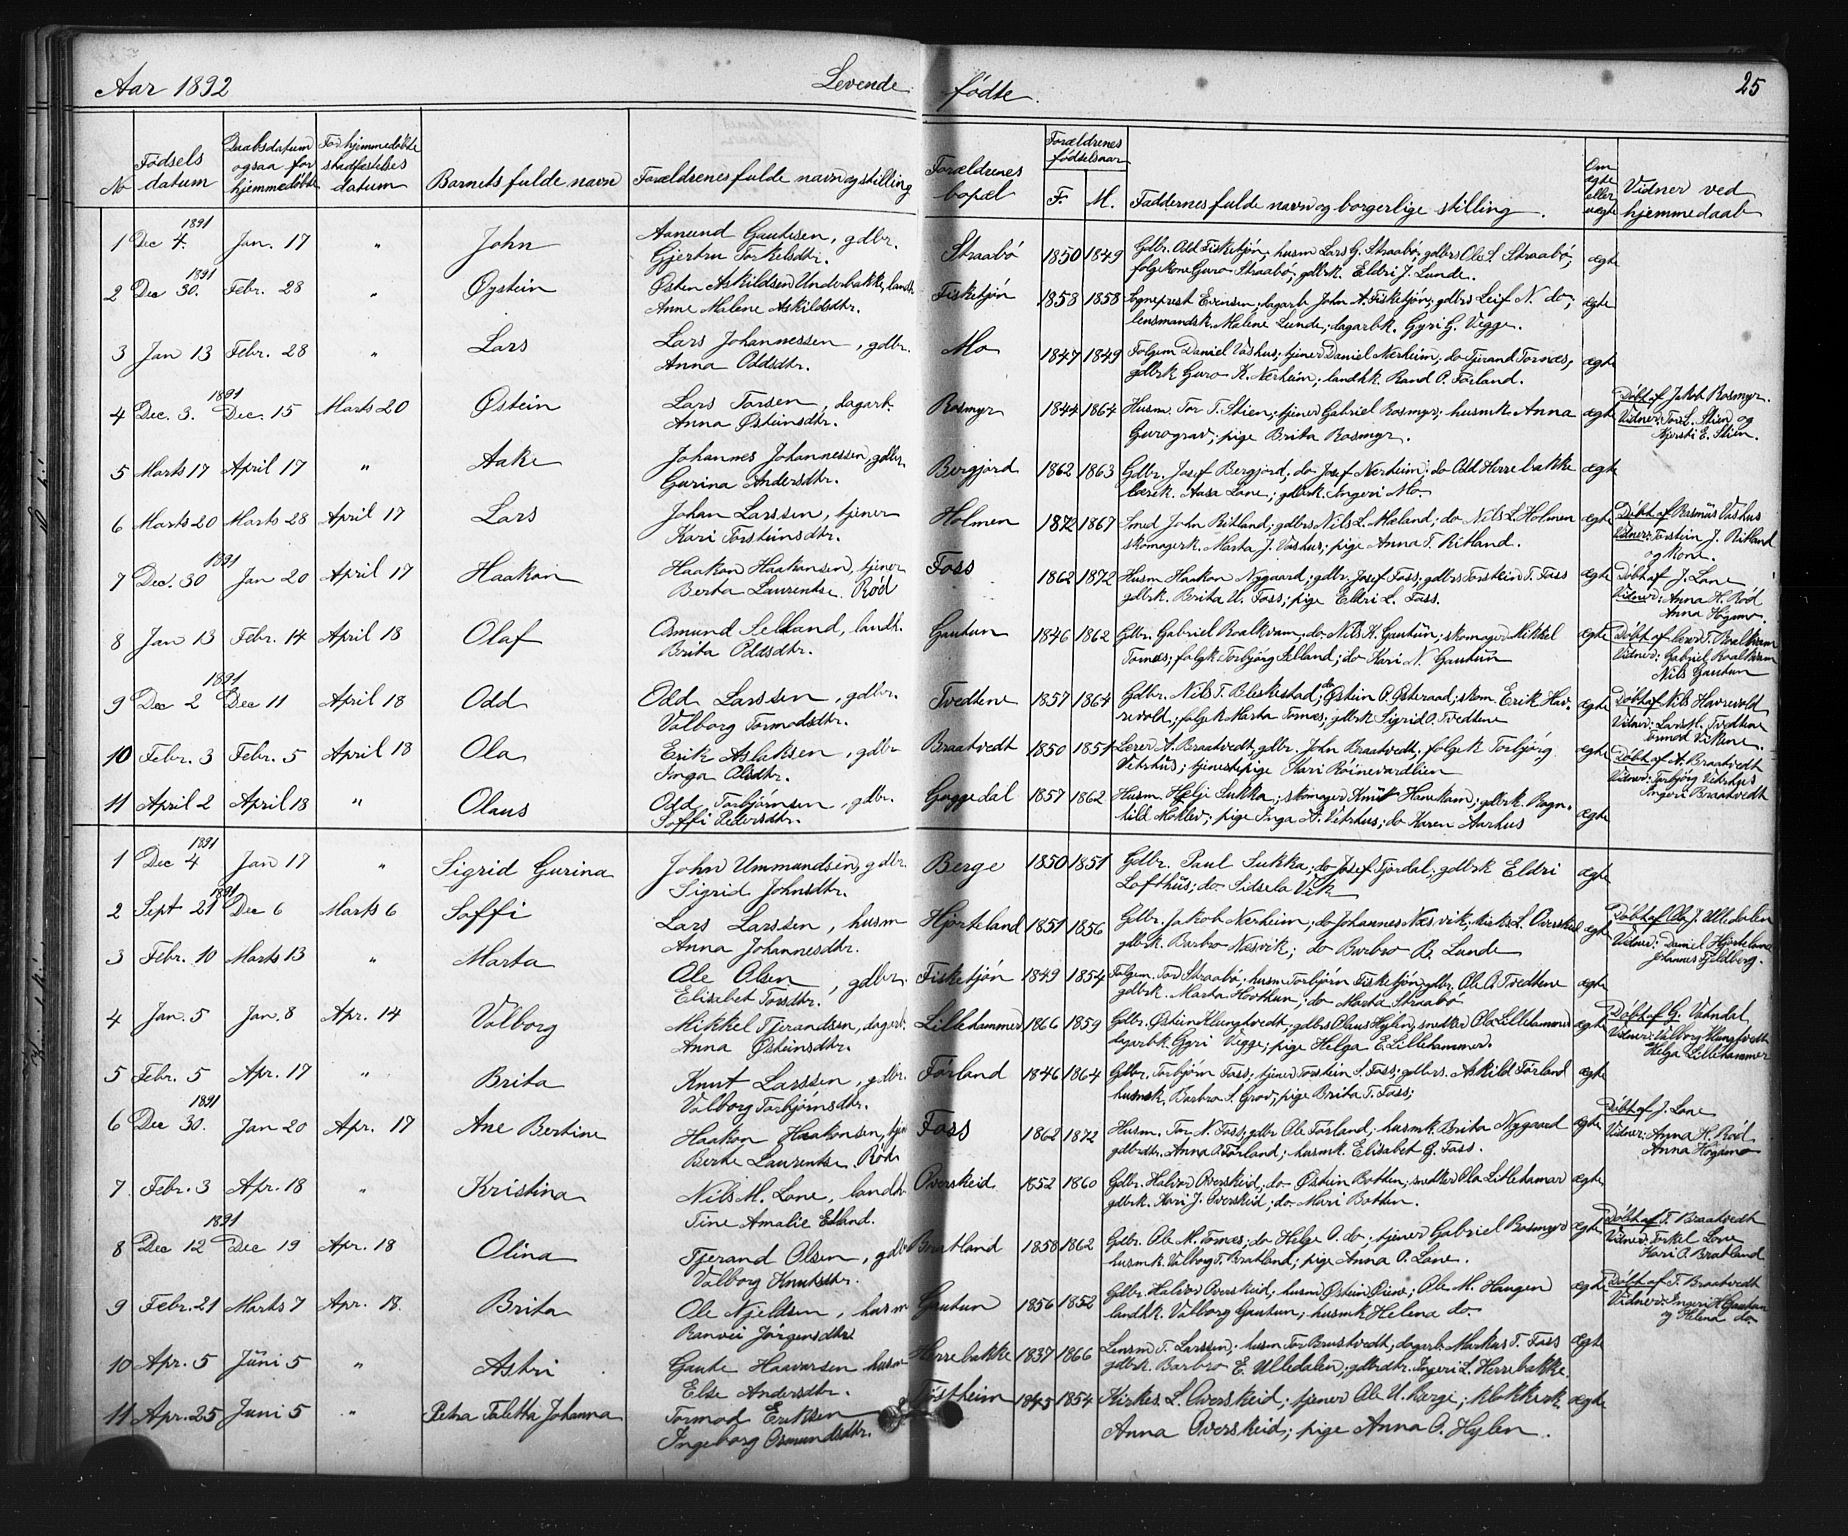 Aar 1892 Levende fødte. 25
No Fødsels datum Daabsdatum ogsaa for hjemmedøbte For hjemmedøbte stadfæstelses datum Barnets fulde navn Forældrenes fulde navn og stilling Forældrenes bopæl Forældrenes fødselsaar F. M. Faddernes fulde navn og borgerlige stilling. Om ægte eller uægte Vidner ved hjemmedaab
1 1891 Dec 4. Jan. 17 " John Aanund Gautesen, gdbr. Straabø 1850 1849 Gdbr. Odd Fisketjøn, husm Lars G. Straabø, gdbrs Ole S. Straabø, ægte
Gjertru Torkelsdtr. folgkone Guro Straabø, gdbrk. Eldri J. Lunde.
2 1891 Dec 30. Febr. 28 " Øystein Østen Askildsen Underbakke, landh. Fisketjøn 1858 1858 Sogneprest Evensen; dagarb John A. Fisketjøn; gdbrs Leif N. do; ægte
Anne Malene Askildsdtr. lensmandsk. Malene Lunde; dagarbk. Gyri G. Vegge.
3 Jan 13 Febr. 28 " Lars Lars Johannessen, gdbr. Mo 1847 1849 Folgem Daniel Vashus, tjener Daniel Nerheim; do Tjerand Tornæs, ægte
Anna Oddsdtr. gdbrk Guro K. Nerheim; landhk. Rand O. Førland.
4 1891 Dec. 3. Dec. 15 Marts 20 Østein Lars Torsen, dagarb. Rosmyr 1844 1864 Husm. Tor T. Stien; tjener Gabriel Rosmyr; husmk. Anna ægte Døbt af Jakob Rosmyr.
Anna Østeinsdtr. Gurograv; pige Brita Rosmyr. Vidner: Tor L. Stien og
Kjersti E. Stien.
5 Marts 17 April 17 " Aake Johannes Johannessen, gdbr. Bergjord 1862 1863 Gdbr. Josef Bergjord, do Josef Nerheim; do Odd Herrebakke ægte
Gurina Andersdtr. lærerk. Aasa Lone; gdbrk. Ingeri Mo
6 Marts 20 Marts 28 April 17 Lars Johan Larssen, tjener Holmen 1872 1867 Smed John Ritland; gdbrs Nils L. Mæland; do Nils L. Holmen ægte Døbt af Rasmus Vashus
Kari Torsteinsdtr. skomagerk. Marta J. Vashus; pige Anna T. Ritland. Vidner: Torstein J. Ritland
og kone.
7 1891 Dec. 30 Jan 20 April 17 Haakon Haakon Haakonsen, tjener Foss 1862 1872 Husm Haakon Nygaard; gdbr. Josef Foss, gdbrs Torstein T. Foss ægte Døbt af J. Lone
Berta Laurentse. Rød gdbrk. Brita U. Foss; pige Eldri L. Foss. Vidner: Anna H. Rød
Anna Høgamo.
8 Jan 13 Febr. 14 April 18 Olaf Osmund Selland, landh. Gautun 1846 1862 Gdbr. Gabriel Roalkvam, do Nils K. Gautun; skomager Mikkel ægte Døbt af lærer T. Roalkvam
Brita Oddsdtr. Tornæs; folgk Torbjørg Selland; do Kari N. Gautun Vidner: Gabriel Roalkvam
Nils Gautun
9 1891 Dec 2 Dec 11 April 18 Odd Odd Larssen, gdbr. Tvedtene 1857 1864 Gdbr. Nils T. Bleskestad, do Østein O. Østeraad; skom Erik Hav- ægte Døbt af Nils Havrevold
Valborg Tormodsdtr. revold; folgk Marta Tornæs; gdbrk Sigrid O. Tvedtene Vidner: Lars H. Tvedtene
Tormod Vikene.
10 Febr. 3 Febr. 5 April 18 Ola Erik Aslaksen, gdbr Braatvedt 1850 1851 Lærer A. Braatvedt, gdbr. John Braatvedt; folgek Torbjørg ægte Døbt af A. Braatvedt
Inga Olsdtr. Vetrhus; tjenestepige Kari Røinevardlien Vidner: Torbjørg Vetrhus
Ingeri Braatvedt
11 April 2 April 18 " Olaus Odd Torbjørnsen, gdbr. Goggedal 1857 1862 Husm. Helje Sukka; skomager Knut Hanakam; gdbrk. Ragn- ægte
Soffi Pedersdtr. hild Moklev; pige Inga A. Vetrhus; do Karen Aarhus
1 1891 Dec 4 Jan 17 " Sigrid Gurina John Ummundsen, gdbr. Berge 1850 1851 Gdbr. Paul Sukka; do Josef Fjordal; gdbrk Eldri ægte
Sigrid Johnsdtr. Lofthus; do Sidsela Vik
2 1891 Sept 21 Dec 6 Marts 6 Soffi Lars Larssen, husm Hjorteland 1851 1856 Gdbr. Jakob Nerheim; do Johannes Næsvik; kirkes L. Overskeid ægte Døbt af Ola J. Ulledalen
Anna Johannesdtr. gdbrk. Barbro Nesvik; do Barbro B. Lunde Vidner: Daniel Hjorteland
Johannes Fjeldberg.
3 Febr. 10 Marts 13 " Marta Ole Olsen, gdbr. Fisketjøn 1849 1854 Folgem. Tor Straabø; husm Torbjørn Fisketjøn; gdbr. Ole O. Tvedtene ægte
Elisabet Torsdtr. gdbrk. Marta Hovthun; do Marta Straabø
4 Jan. 5 Jan. 8 Apr. 14 Valborg Mikkel Tjerandsen, dagarb. Lillehammer 1866 1859 Gdbr. Østein Klungtvedt, gdbrs Olaus Hylen, snedker Ola Lillehammer ægte Døbt af G. Vatndal
Anna Østeinsdtr. dagarbk. Gyri Vegge; pige Helga E. Lillehammer. Vidner: Valborg Klungtvedt
Helga Lillehammer
5 Febr. 5 Apr. 17 " Brita Knut Larssen, gdbr. Førland 1846 1864 Gdbr. Torbjørn Foss; tjener Torstein S. Foss; gdbrs. Askild Førland ægte
Valborg Torbjørnsdtr. husmk. Barbro S. Grov; pige Brita T. Foss;
6 1891 Dec 30. Jan 20 Apr. 17 Ane Bertine Haakon Haakonsen, tjen Foss 1862 1872 Husm. Tor N. Foss; gdbr Ole Førland; husmk. Brita Nygaard ægte Døbt af J. Lone
Berte Laurentse. Rød gdbrdtr. Anna O. Førland; husmk. Elisabet G. Foss. Vidner: Anna H. Rød
Anna Høgamo
7 Febr. 3 Apr. 18 " Kristina Nils M. Lone, landh. Overskeid 1852 1860 Gdbr. Halvor Overskeid; do Østein Botten; snedker Ola Lillehamar ægte
Tine Amalie Edland. gdbrk. Kari J. Overskeid; do. Mari Botten.
8 1891 Dec 12 Dec 19 Apr. 18 Olina Tjerand Olsen, gdbr Bratland 1858 1862 Gdbr. Ole M. Tornæs; do Helge O. do; tjener Gabriel Rosmyr ægte Døbt af T. Braatvedt
Valborg Knutsdtr. husmk. Valborg T. Bratland; pige Anna O. Lone. Vidner: Torkel Lone
Kari O. Bratland
9 Febr. 21 Marts 7 Apr. 18. Brita Ole Njeldsen, husm Gautun 1856 1852 Gdbr. Halvor Overskeid, husm Østein Øine; Ole M. Haugen ægte Døbt af T. Braatvedt
Ranvei Jørgensdtr landhk. Valborg Gautun; husmk Helena do Vidner: Ingeri K Gautun
og Helena do
10 Apr. 5 Juni 5 " Astri Gaute Haavarsen husm Herrebakke 1837 1866 Lensm T. Larssen; husm Tor Brustvedt; dagarb. Markus T. Foss ægte
Else Andersdtr. gdbrk. Barbro E. Ulledalen; gdbrdtr. Ingeri L. Herrebakke.
11 Apr. 25 Juni 5 " Petra Taletta Johanna Tormod Eriksen Tøstheim 1845 1854 Kirkes. L. Overskeid; tjener Ole U. Berge; klokkerk. ægte
Ingeborg Osmundsdtr. Anna Overskeid; pige Anna O. Hylen.